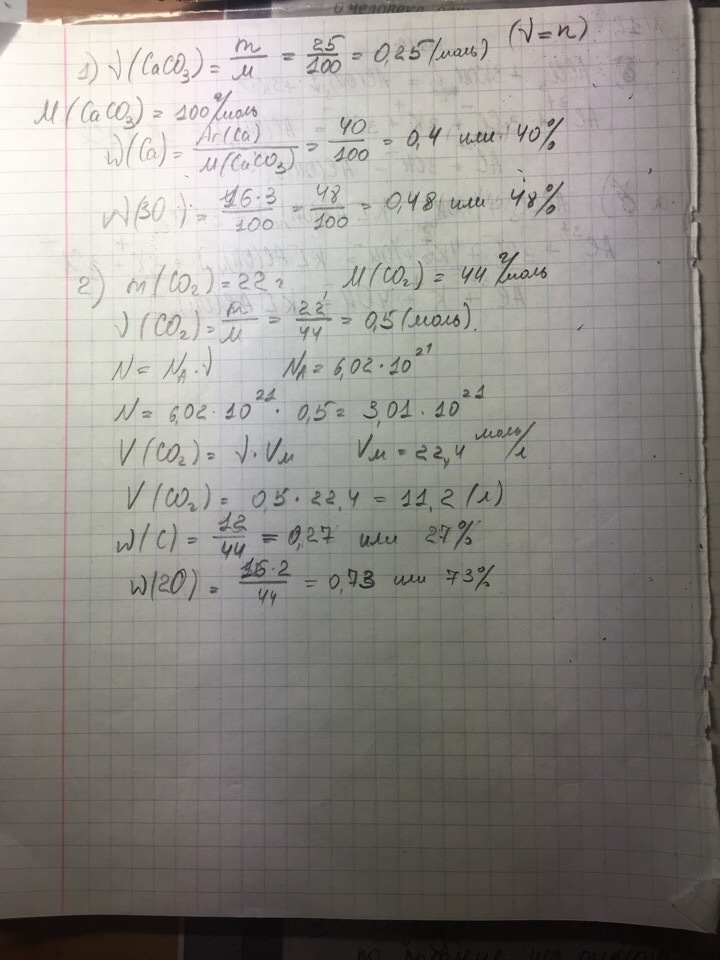 и человека
1) ν(CaCO₃) = m/M = 25/100 = 0,25 (моль) (ν=n)
M(CaCO₃) = 100 г/моль
w(Ca) = Ar(Ca)/M(CaCO₃) = 40/100 = 0,4 или 40%
w(3O) = 16·3/100 = 48/100 = 0,48 или 48%
2) m(CO₂) = 22 г, M(CO₂) = 44 г/моль
ν(CO₂) = m/M = 22/44 = 0,5 (моль).
N = N_A · ν N_A = 6,02·10²¹
N = 6,02·10²¹ · 0,5 = 3,01·10²¹
V(CO₂) = ν·Vм Vм = 22,4 моль/л
V(CO₂) = 0,5·22,4 = 11,2 (л)
w(C) = 12/44 = 0,27 или 27%
w(2O) = 16·2/44 = 0,73 или 73%